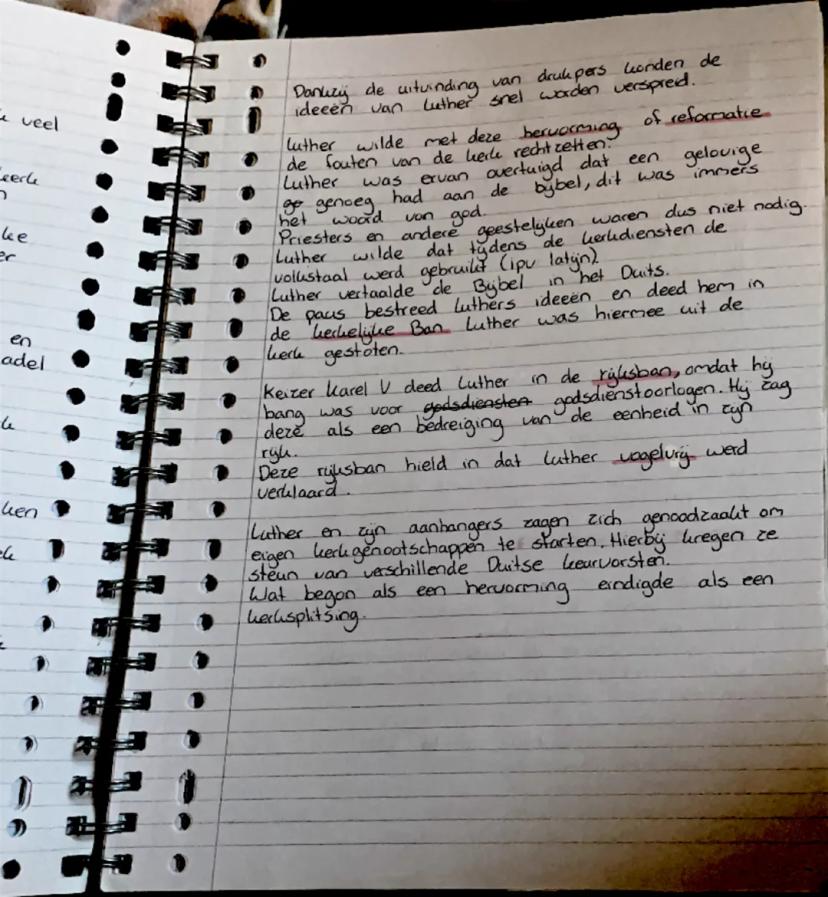 veel
en
adel
Dankzij de uitvinding van drukpers konden de
ideeën van Luther snel worden verspreid.
Luther wilde met deze hervorming of reformatie
de fouten van de kerk rechtzetten.
Luther was ervan overtuigd dat een gelovige
ge genoeg had aan de bijbel, dit was immers
het woord van god.
Priesters en andere geestelijken waren dus niet nodig.
Luther wilde dat tijdens de kerkdiensten de
volkstaal werd gebruikt (ipv latijn)
Luther vertaalde de Bijbel in het Duits.
De paus bestreed Luthers ideeën en deed hem in
de kerkelijke Ban. Luther was hiermee uit de
kerk gestoten.
Keizer Karel V deed Luther in de rijksban, omdat hij
bang was voor godsdiensten godsdienstoorlogen. Hij zag
deze als een bedreiging van de eenheid in zijn
rijk.
Deze rijksban hield in dat Luther vogelvrij werd
verklaard.
Luther en zijn aanhangers zagen zich genoodzaakt om
eigen kerkgenootschappen te starten. Hierbij kregen ze
steun van verschillende Duitse keurvorsten.
Wat begon als een hervorming eindigde als een
kerksplitsing.